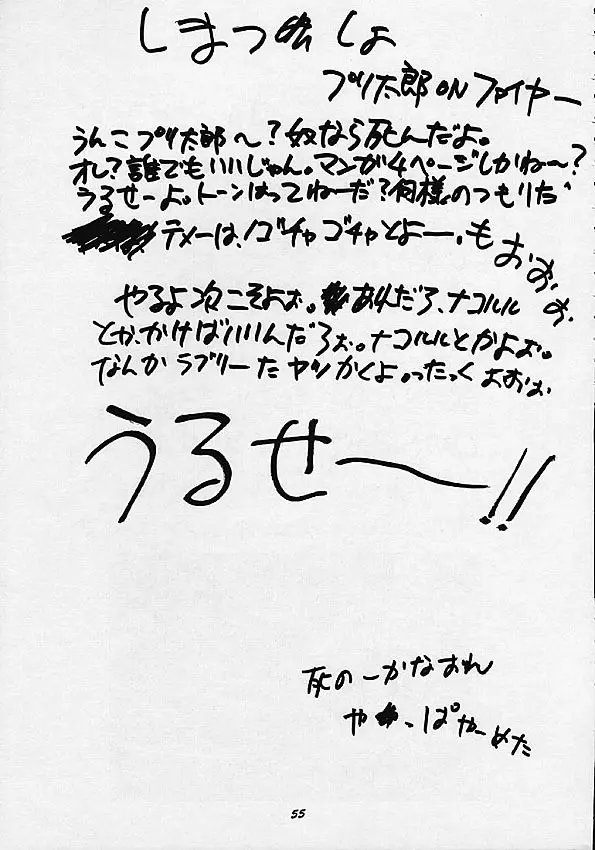 しまつ しょ
プリ太郎 ON ファイヤー
うんこプリ太郎〜?奴なら死んだよ。
オレ?誰でもいいじゃん。マンガ4ページしかね〜?
うるせーよ。トーンはってねーだ?何様のつもりだ
テメーは、ゴチャゴチャとよー、もおおおお、
やるよ次こそよぉ。あれだろ、ナコルル
とか、かけばいいんだろぉ。ナコルルとかよぉ。
なんかラブリーたヤツかくよ。ったっくよおぉぉ
うるせ〜!!
死のーかなおれ
や っぱやーめた
55